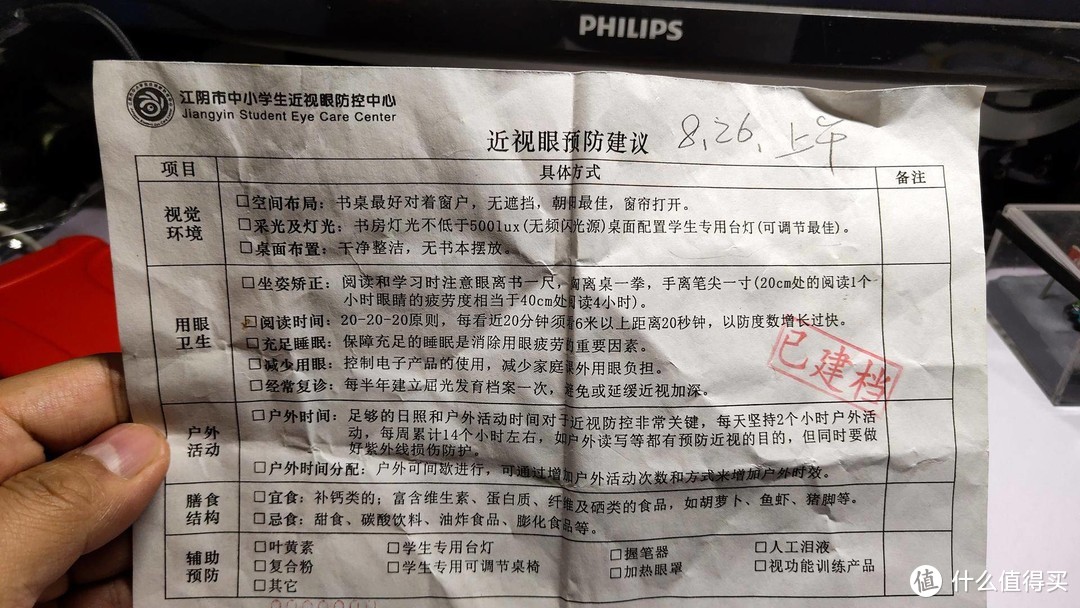 PHILIPS
江阴市中小学生近视眼防控中心
Jiangyin Student Eye Care Center
近视眼预防建议 8.26.上午
项目 具体方式 备注
视觉环境
□空间布局：书桌最好对着窗户，无遮挡，朝阳最佳，窗帘打开。
□采光及灯光：书房灯光不低于500lux(无频闪光源)桌面配置学生专用台灯(可调节最佳)。
□桌面布置：干净整洁，无书本摆放。
用眼卫生
□坐姿矫正：阅读和学习时注意眼离书一尺，胸离桌一拳，手离笔尖一寸(20cm处的阅读1个
小时眼睛的疲劳度相当于40cm处阅读4小时)。
□阅读时间：20-20-20原则，每看近20分钟须看6米以上距离20秒钟，以防度数增长过快。
□充足睡眠：保障充足的睡眠是消除用眼疲劳的重要因素。
□减少用眼：控制电子产品的使用，减少家庭课外用眼负担。
□经常复诊：每半年建立屈光发育档案一次，避免或延缓近视加深。
已建档
户外活动
□户外时间：足够的日照和户外活动时间对于近视防控非常关键，每天坚持2个小时户外活
动，每周累计14个小时左右，如户外读写等都有预防近视的目的，但同时要做
好紫外线损伤防护。
□户外时间分配：户外可间歇进行，可通过增加户外活动次数和方式来增加户外时效。
膳食结构
□宜食：补钙类的；富含维生素、蛋白质、纤维及硒类的食品，如胡萝卜、鱼虾、猪脚等。
□忌食：甜食、碳酸饮料、油炸食品、膨化食品等。
辅助预防
□叶黄素 □学生专用台灯 □握笔器 □人工泪液
□复合粉 □学生专用可调节桌椅 □加热眼罩 □视功能训练产品
□其它
值 什么值得买